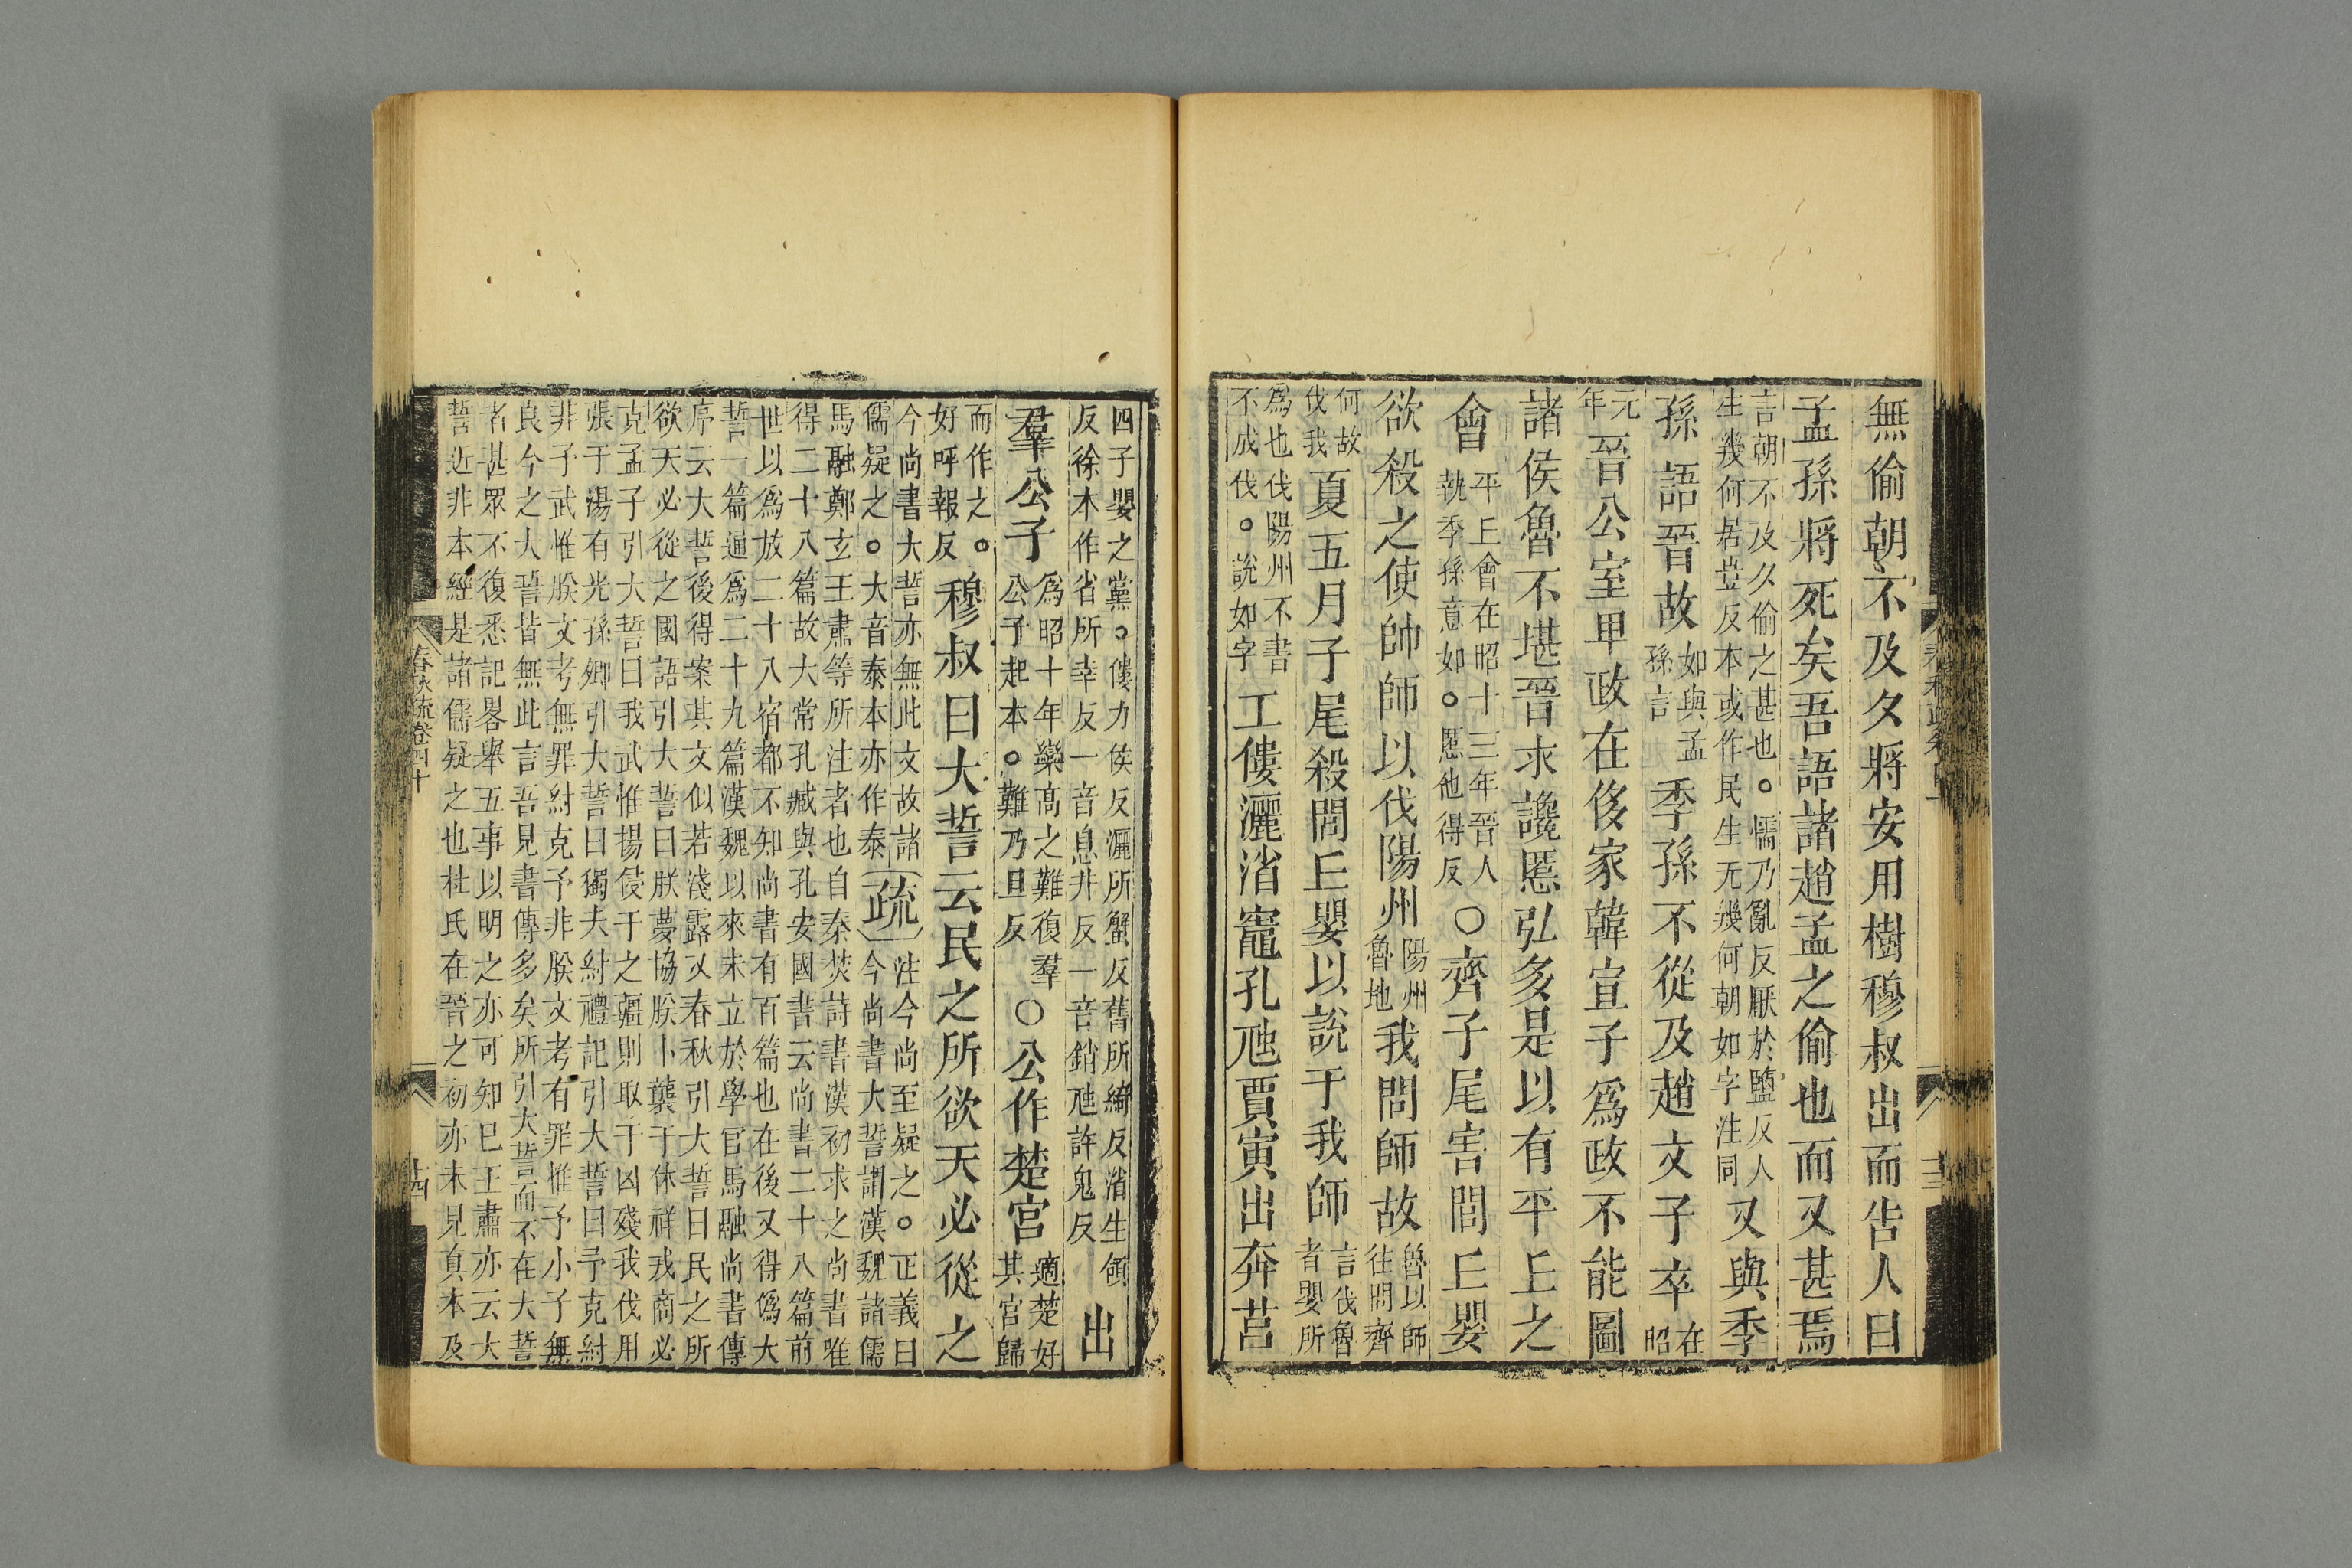 無偷朝不及夕將安用樹穆叔出而告人曰
孟孫將死矣吾語諸趙孟之偷也而又甚焉
言朝不及夕偷之甚也。懦乃亂反厭於鹽反人
生幾何居豈反本或作民生无幾何朝如字注同
又與季
孫語晉故
如與孟
孫言
季孫不從及趙文子卒
在昭
元年
晉公室卑政在侈家韓宣子爲政不能圖
諸侯魯不堪晉求讒慝弘多是以有平丘之
會
平丘會在昭十三年晉人
執季孫意如。慝他得反
○齊子尾害閭丘嬰
欲殺之使帥師以伐陽州
陽州
魯地
我問師故
魯以師
往問齊
何故
伐我
夏五月子尾殺閭丘嬰以說于我師
言伐魯
者嬰所
爲也伐陽州不書
不成伐。說如字
工僂灑渻竈孔虺賈寅出奔莒
四子嬰之黨。僂力侯反灑所蟹反舊所綺反渻生領
反徐本作省所幸反一音息井反一音銷虺許鬼反
出
羣公子
爲昭十年欒高之難復羣
公子起本。難乃旦反
○公作楚宮
適楚好
其宮歸
而作之。
好呼報反
穆叔曰大誓云民之所欲天必從之
今尚書大誓亦無此文故諸
儒疑之。大音泰本亦作泰
疏
注今尚至疑之。正義曰
今尚書大誓謂漢魏諸儒
馬融鄭玄王肅等所注者也自秦焚詩書漢初求之尚書唯
得二十八篇故大常孔臧與孔安國書云尚書二十八篇前
世以爲放二十八宿都不知尚書有百篇也在後又得僞大
誓一篇通爲二十九篇漢魏以來未立於學官馬融尚書傳
序云大誓後得案其文似若淺露又春秋引大誓曰民之所
欲天必從之國語引大誓曰朕夢協朕卜襲于休祥戎商必
克孟子引大誓曰我武惟揚侵于之疆則取于凶殘我伐用
張于湯有光孫卿引大誓曰獨夫紂禮記引大誓曰予克紂
非予武惟朕文考無罪紂克予非朕文考有罪惟予小子無
良今之大誓皆無此言吾見書傳多矣所引大誓而不在大誓
者甚眾不復悉記畧舉五事以明之亦可知巳王肅亦云大
誓近非本經是諸儒疑之也杜氏在晉之初亦未見真本及
春秋疏卷四十
十四